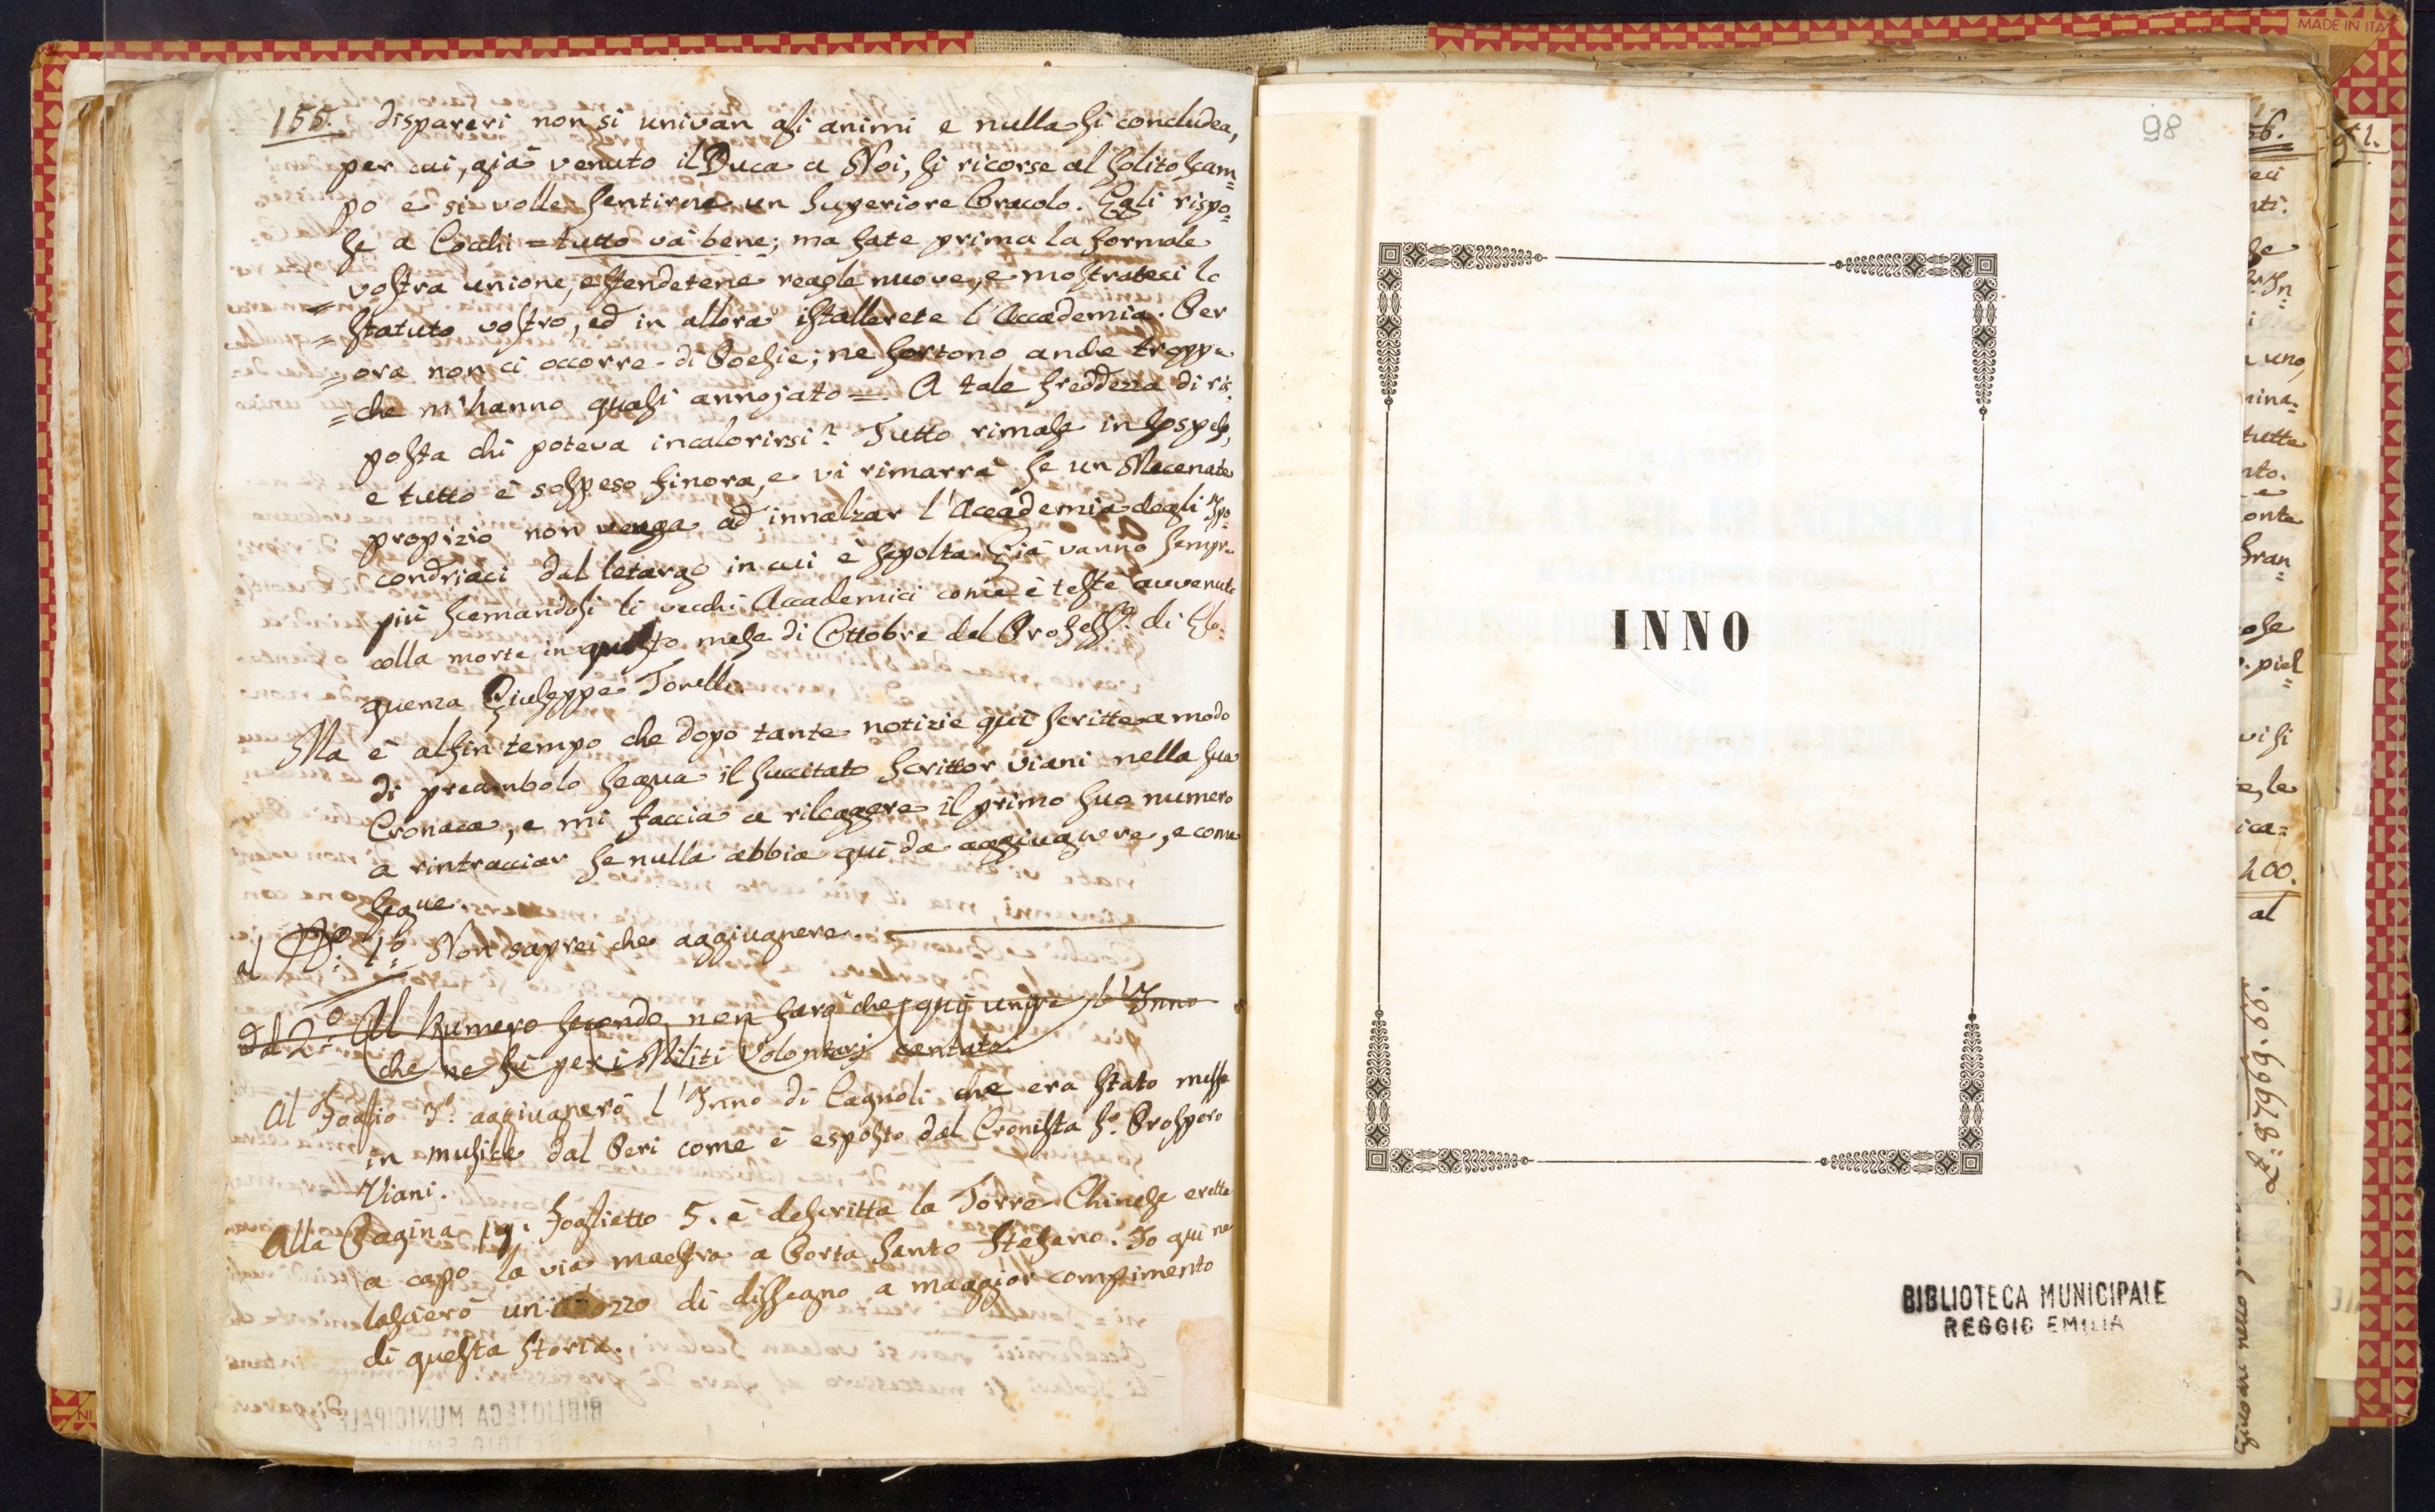 155. dispareri non si univan gli animi e nulla si concludea,
per cui, già venuto il Duca a Noi, si ricorse al solito scam=
po e si volle sentirne un superiore Oracolo. Egli rispo=
se a Cocchi = tutto va bene; ma fate prima la formale
= vostra unione, estendetene regole nuove, e mostrateci lo
= statuto vostro, ed in allora istallerete l'Accademia. Per
= ora non ci occorre di Poesie; ne sortono anche troppe
= che m'hanno quasi annojato =. A tale freddezza di ris=
posta chi poteva incalorirsi? Tutto rimase in sospeso,
e tutto è sospeso finora, e vi rimarrà se un Mecenate
propizio non venga ad innalzar l'Accademia degli Ipo=
condriaci dal letargo in cui è sepolta. Già vanno sempre
più scemandosi li vecchi Accademici come è testè avvenuto
colla morte in questo mese di Ottobre del Profess.e di Elo=
quenza Giuseppe Tonelli.
Ma è alfin tempo che dopo tante notizie quì scritte a modo
di preambolo segua il succitato scrittor Viani nella sua
Cronaca, e mi faccia a rileggere il primo suo numero
a rintracciar se nulla abbia quì da aggiugnere, e come
segue.
al N.o 1.o Non saprei che aggiugnere.
Al 2.o Al Numero secondo non farò che quì unire l'Inno
che ne fù per i Militi Volontarj cantato.
Al Foglio 3.o aggiugnerò l'Inno di Cagnoli che era stato messo
in musica dal Peri come è esposto dal Cronista S.r Prospero
Viani.
Alla Pagina 19. foglietto 5. è descritta la Torre Chinese eretta
a capo la via maestra a Porta Santo Stefano. Io quì ne
lascierò un di dissegno a maggior compimento
di questa storia.
98
INNO
BIBLIOTECA MUNICIPALE
REGGIO EMILIA
MADE IN ITA
56.
uno,
mina=
tutte
onte
400.
al